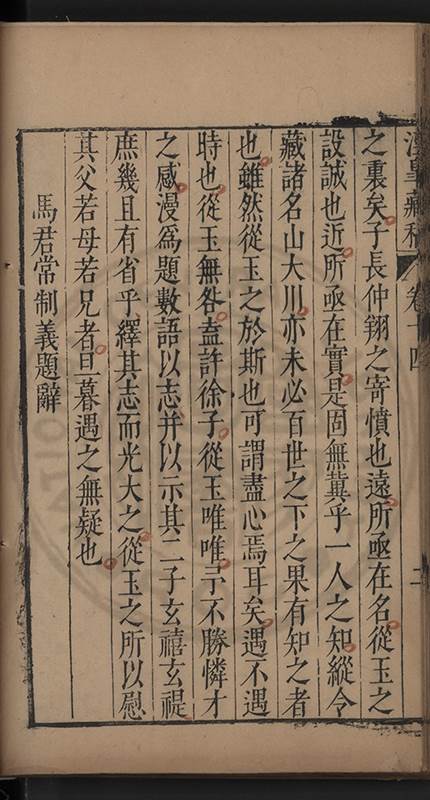 藏稿 卷十四
二
之裏矣子長仲翔之寄憤也遠所亟在名從玉之
設誠也近所亟在實是固無冀乎一人之知縱令
藏諸名山大川亦未必百世之下之果有知之者
也雖然從玉之於斯也可謂盡心焉耳矣遇不遇
時也從玉無咎盍許徐子從玉唯唯予不勝憐才
之感漫為題數語以志并以示其二子玄禧玄禔
庶幾且有省乎繹其志而光大之從玉之所以慰
其父若母若兄者旦暮遇之無疑也
馬君常制義題辭